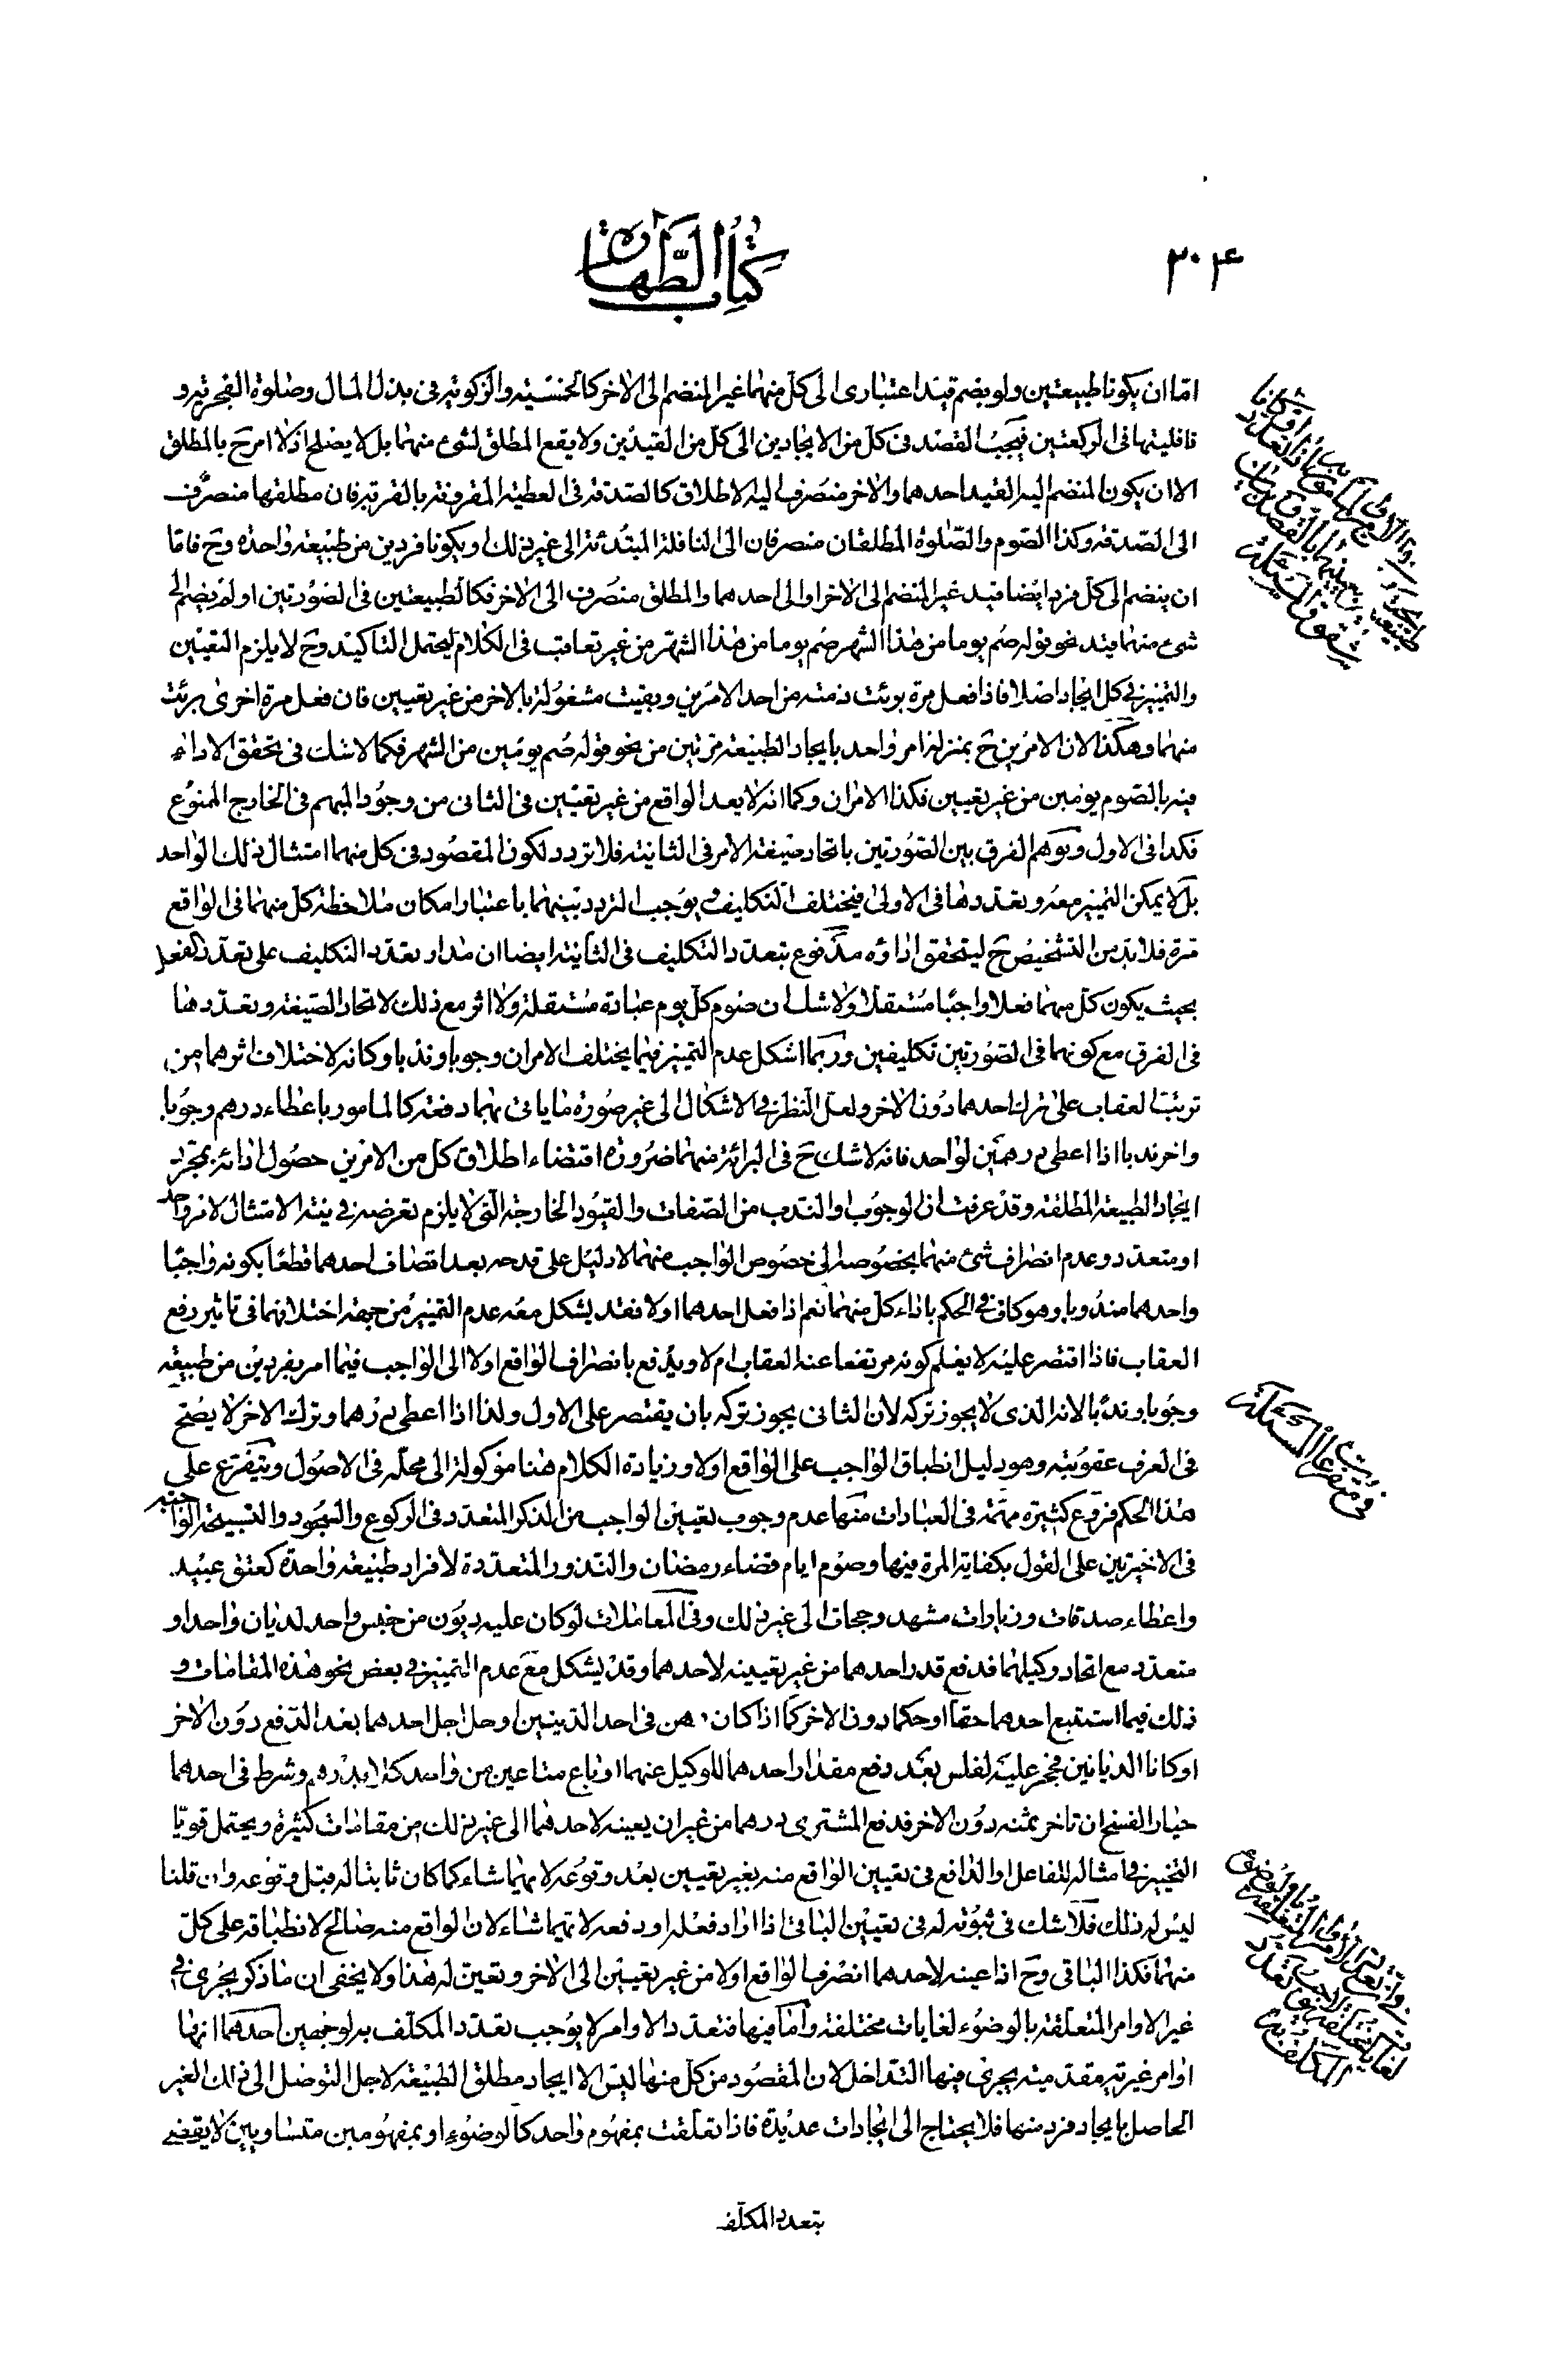 ٣٠۴
كتاب الطهارة
اما ان يكونا طبيعتين ولو بضم قيد اعتبارى الى كل منهما غير المنضم الى الاخر كالخمسية والزكوتية فى بذل المال وصلوة الفجرية و
نافليتها فى الركعتين فيجب القصد فى كل من الايجادين الى كل من القيدين ولا يقع المطلق لشئ منهما بل لا يصلح اذ لا امر ح بالمطلق
الا ان يكون المنضم اليه القيد احدهما والاخر منصرف اليه الاطلاق كالصدقة فى العطية المقرونة بالقربة فان مطلقها منصرف
الى الصدقة وكذا الصوم والصلوة المطلقان منصرفان الى النافلة المبتدئة الى غير ذلك او يكونا فردين من طبيعة واحدة وح فاما
ان ينضم الى كل فرد ايضا قيد غير المنضم الى الاخر او الى احدهما والمطلق منصرف الى الاخر فكالطبيعتين فى الصورتين او لم يضم الى
شئ منهما قيد نحو قوله صم يوما من هذا الشهر صم يوما من هذا الشهر من غير تعاقب فى الكلام ليحتمل التاكيد وح لا يلزم التعيين
والتميز فى كل ايجاد اصلا فاذا فعل مرة برئت ذمته من احد الامرين وبقيت مشغولة بالاخر من غير تعيين فان فعل مرة اخرى برئت
منهما وهكذا لان الامرين ح بمنزلة امر واحد بايجاد الطبيعة مرتين من نحو قوله صم يومين من الشهر فكما لا شك فى تحقق الاداء
فيه بالصوم يومين من غير تعيين فكذا الامران وكما انه لا يعد الواقع من غير تعيين فى الثانى من وجود المبهم فى الخارج الممنوع
فكذا فى الاول وتوهم الفرق بين الصورتين باتحاد صيغة الامر فى الثانية فلا تردد لكون المقصود فى كل منهما امتثال ذلك الواحد
بل لا يمكن التميز معه وتعددها فى الاولى فيختلف التكليف ويوجب التردد بينهما باعتبار امكان ملاحظة كل منهما فى الواقع
مرة فلا بد من التشخيص ح ليتحقق اداؤه مدفوع بتعدد التكليف فى الثانية ايضا اذ مدار تعدد التكليف على تعدد الفعل
بحيث يكون كل منهما فعلا واجبا مستقلا ولا شك ان صوم كل يوم عبادة مستقلة ولا اثر مع ذلك لاتحاد الصيغة وتعددها
فى الفرق مع كونهما فى الصورتين تكليفين وربما اشكل عدم التميز فيما يختلف الامران وجوبا وندبا وكانه لاختلاف اثرهما من
ترتب العقاب على ترك احدهما دون الاخر ولعل النظر فى الاشكال الى غير صورة ما ياتى بهما دفعة كالمامور باعطاء درهم وجوبا
واخر ندبا اذا اعطى درهمين لواحد فانه لا شك ح فى البرائة منهما ضرورة اقتضاء اطلاق كل من الامرين حصول ادائه بمجرد
ايجاد الطبيعة المطلقة وقد عرفت ان الوجوب والندب من الصفات والقيود الخارجة التى لا يلزم تعرضه فى نية الامتثال لامر واحد
او متعدد وعدم انصراف شئ منهما بخصوصه الى خصوص الواجب منهما لا دليل على قدحه بعد اتصاف احدهما قطعا بكونه واجبا
واحدهما مندوبا وهو كاف فى الحكم باداء كل منهما نعم اذا فعل احدهما اولا فقد يشكل معه عدم التميز من جهة اختلافهما فى تاثير رفع
العقاب فاذا اقتصر عليه لا يعلم كونه مرتفعا عنه العقاب ام لا ويدفع بانصراف الواقع اولا الى الواجب فيما امر بفردين من طبيعة
وجوبا وندبا لانه الذى لا يجوز تركه لان الثانى يجوز تركه بان يقتصر على الاول ولذا اذا اعطى درهما وترك الاخر لا يصح
فى العرف عقوبته وهو دليل انطباق الواجب على الواقع اولا وزيادة الكلام هنا موكولة الى محله فى الاصول ويتفرع على
هذا الحكم فروع كثيرة مهمة فى العبادات منها عدم وجوب تعيين الواجب من الذكر المتعدد فى الركوع والسجود والتسبيحة الواجبة
فى الاخيرتين على القول بكفاية المرة فيها وصوم ايام قضاء رمضان والنذور المتعددة لافراد طبيعة واحدة كعتق عبيد
واعطاء صدقات وزيارات مشهد وحجات الى غير ذلك وفى المعاملات لو كان عليه ديون من جنس واحد لديان واحد او
متعدد مع اتحاد وكيلهما فدفع قدر احدهما من غير تعيينه لاحدهما وقد يشكل مع عدم التميز فى بعض نحو هذه المقامات و
ذلك فيما استتبع احدهما حقا او حكما دون الاخر كما اذا كان رهن فى احد الدينين او حل اجل احدهما بعد الدفع دون الاخر
او كانا الديانين فحجر عليه لفلس بعد دفع مقدار احدهما للوكيل عنهما او باع متاعين من واحد كلا بدرهم وشرط فى احدهما
خيار الفسخ ان تاخر ثمنه دون الاخر فدفع المشترى درهما من غير ان يعينه لاحدهما الى غير ذلك من مقامات كثيرة ويحتمل قويا
التخيير فى امثاله للفاعل او الدافع فى تعيين الواقع منه بغير تعيين بعد وقوعه لايهما شاء كما كان ثابتا له قبل وقوعه وان قلنا
ليس له ذلك فلا شك فى ثبوته له فى تعيين الباقى اذا اراد فعله او دفعه لايهما شاء لان الواقع منه صالح لانطباقه على كل
منهما فكذا الباقى وح اذا عينه لاحدهما انصرف الواقع اولا من غير تعيين الى الاخر وتعين له هذا ولا يخفى ان ما ذكر يجرى فى
غير الاوامر المتعلقة بالوضوء لغايات مختلفة واما فيها فتعدد الاوامر لا يوجب تعدد المكلف به لوجهين احدهما انها
اوامر غيرية مقدمية يجرى فيها التداخل لان المقصود من كل منها ليس الا ايجاد مطلق الطبيعة لاجل التوصل الى ذلك الغير
الحاصل بايجاد فرد منها فلا يحتاج الى ايجادات عديدة فاذا تعلقت بمفهوم واحد كالوضوء او بمفهومين متساويين لا يقضى
بتعدد المكلف